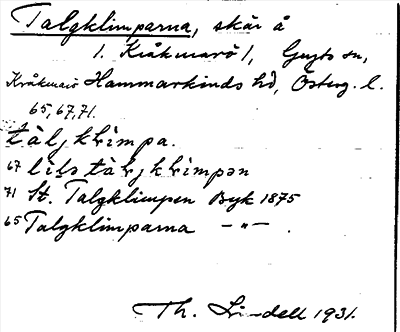 Talgklimparna, skär å
1. Kråkmarö 1, Gryts sn,
Kråkmarö Hammarkinds hd, Österg. l.
65, 67, 71.
tàl, klìmpa.
67 lìḷs tàl, klìmpən
71 St. Talgklimpen Byk 1875
65 Talgklimparna — " — .
Th. Lindell 1931.